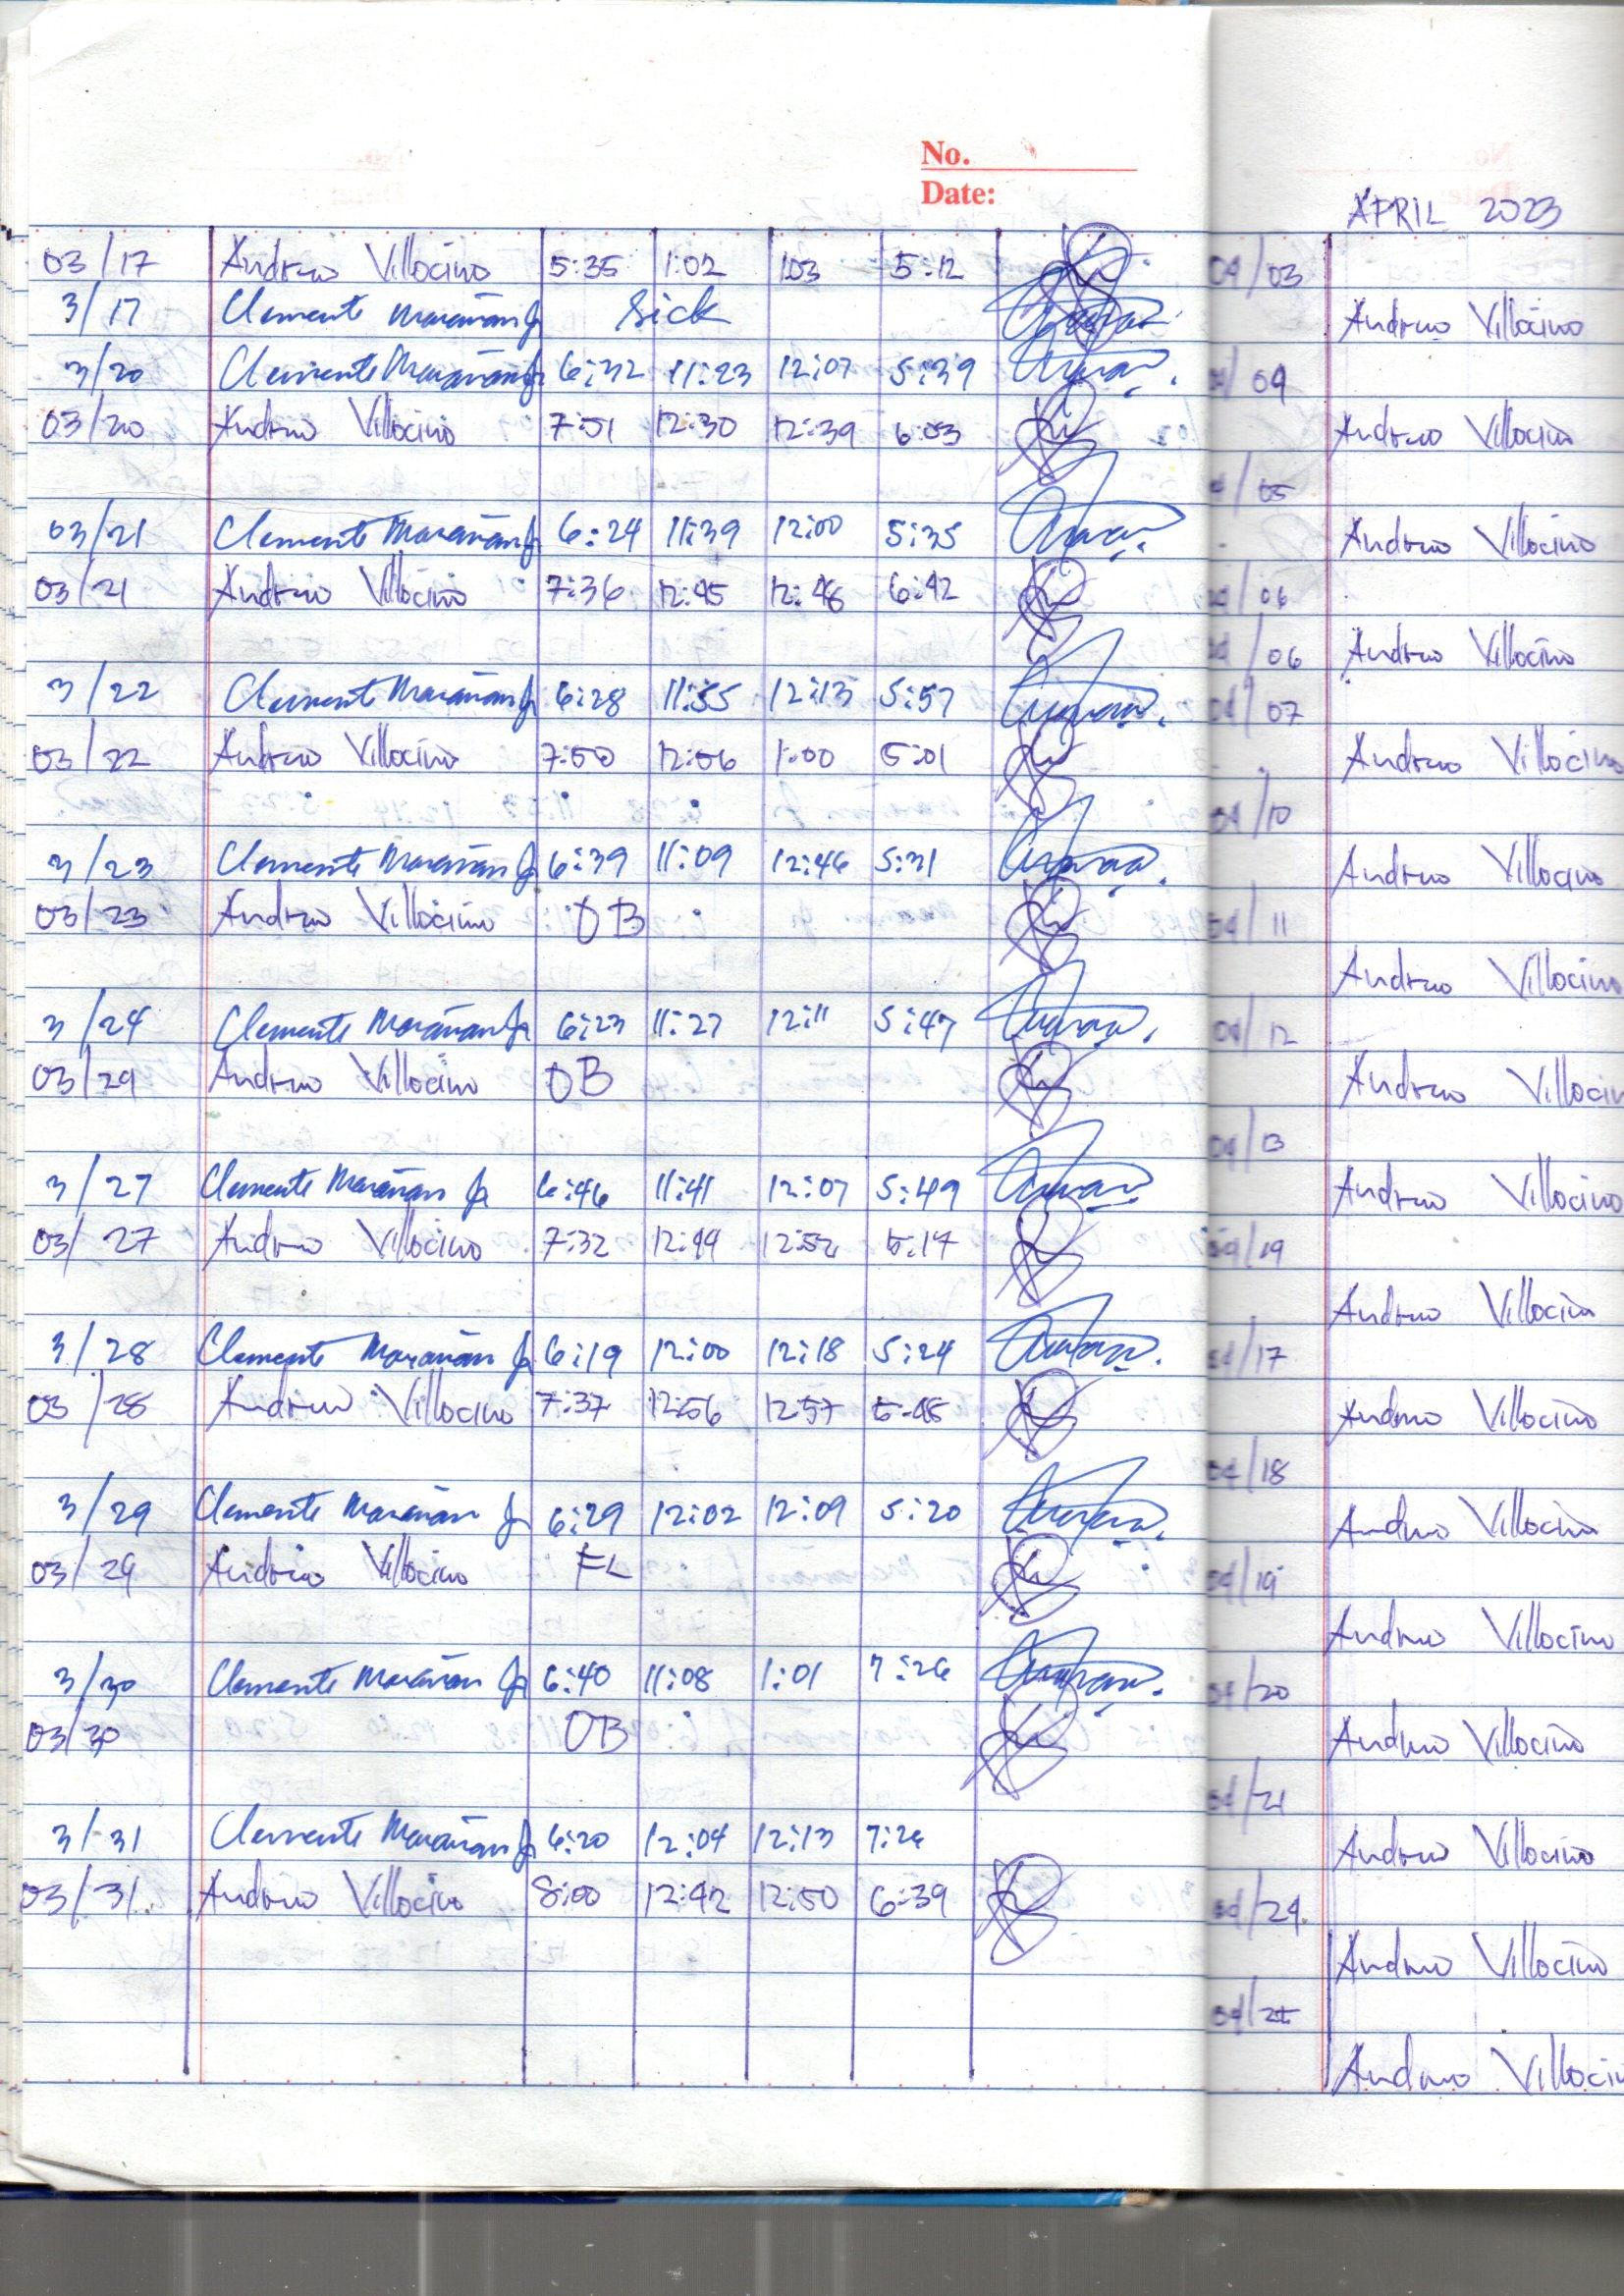 No.
Date:
03/17 Andrew Villocino 5:35 1:02 1:03 5:12
3/17 Clemente Marañan Jr Sick
3/20 Clemente Marañan Jr 6:32 11:23 12:07 5:39
03/20 Andrew Villocino 7:51 12:30 12:39 6:03
03/21 Clemente Marañan Jr 6:24 11:39 12:00 5:35
03/21 Andrew Villocino 7:36 12:45 12:46 6:42
3/22 Clemente Marañan Jr 6:28 11:55 12:13 5:57
03/22 Andrew Villocino 7:50 12:56 1:00 5:01
3/23 Clemente Marañan Jr 6:39 11:09 12:46 5:31
03/23 Andrew Villocino OB
3/24 Clemente Marañan Jr 6:23 11:27 12:11 5:47
03/24 Andrew Villocino OB
3/27 Clemente Marañan Jr 6:46 11:41 12:07 5:49
03/27 Andrew Villocino 7:32 12:44 12:52 5:14
3/28 Clemente Marañan Jr 6:19 12:00 12:18 5:24
03/28 Andrew Villocino 7:37 12:56 12:57 5:45
3/29 Clemente Marañan Jr 6:29 12:02 12:09 5:20
03/29 Andrew Villocino FL
3/30 Clemente Marañan Jr 6:40 11:08 1:01 7:26
03/30 OB
3/31 Clemente Marañan Jr 6:20 12:04 12:13 7:26
03/31 Andrew Villocino 8:00 12:42 12:50 6:39
APRIL 2023
04/03
Andrew Villocino
04/04
Andrew Villocino
04/05
Andrew Villocino
04/06
04/06 Andrew Villocino
04/07
Andrew Villocino
04/10
Andrew Villocino
04/11
Andrew Villocino
04/12
Andrew Villocino
04/13
Andrew Villocino
04/14
Andrew Villocino
04/17
Andrew Villocino
04/18
Andrew Villocino
04/19
Andrew Villocino
04/20
Andrew Villocino
04/21
Andrew Villocino
04/24
Andrew Villocino
04/25
Andrew Villocino